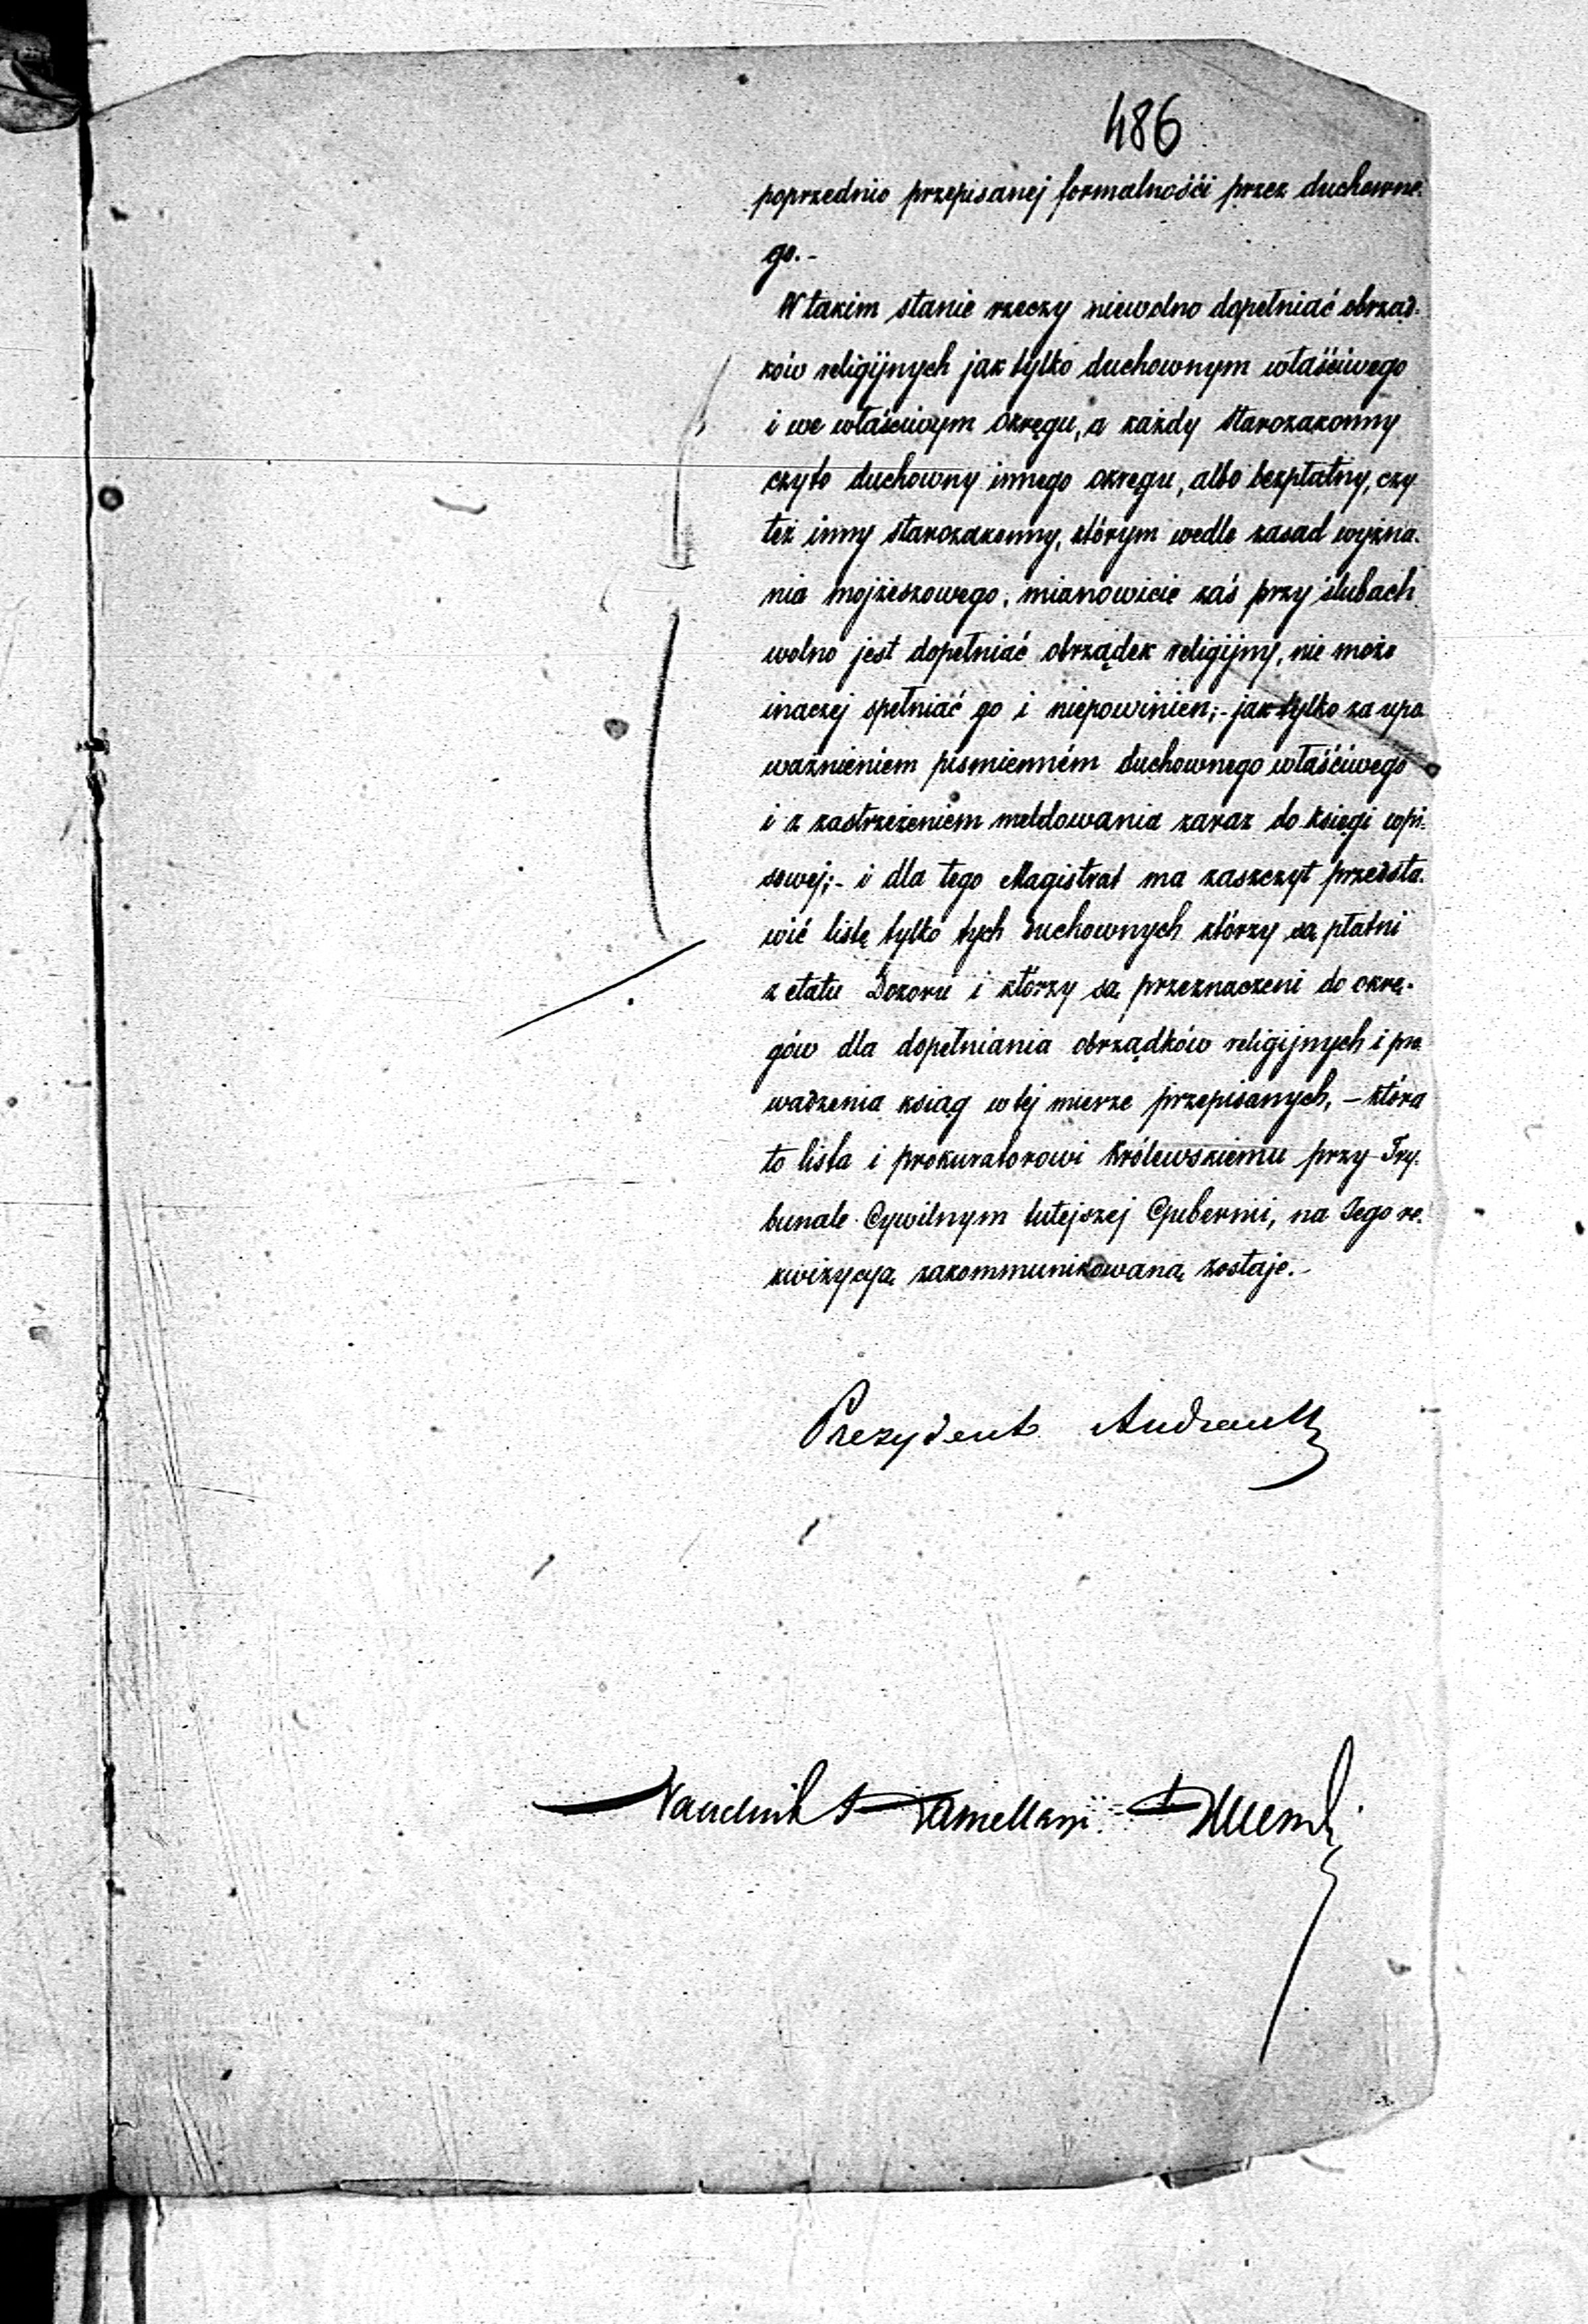 486
poprzednio przepisanej formalnośći przez duchowne-
go.-
W takim stanie rzeczy niewolno dopełniać obrząd-
ków religijnych jak tylko duchownym właściwego
i we właściwym okręgu, a każdy starozakonny
czyto duchowny innego okręgu, albo bezpłatny, czy
też inny starozakonny, którym wedle zasad wyzna-
nia mojżeszowego, mianowicie zaś przy ślubach
wolno jest dopełniać obrządek religijny, nie może
inaczej spełniać go i niepowinien;- jak tylko za upo
ważnieniem piśmienném duchownego właśćiwego
i z zastrzeżeniem meldowania zaraz do księgi wpi-
sowej;- i dla tego Magistrat ma zaszczyt przedsta-
wić listę tylko tych duchownych którzy są płatni
z etatu Dozoru i którzy są przeznaczeni do okrę-
gów dla dopełniania obrządków religijnych i pro
wadzenia ksiąg w tej mierze przepisanych, – która
to lista i prokuratorowi Królewskiemu przy Try-
bunale Cywilnym tutejszej Gubernii, na Jego re-
kwizycyą zakommunikowaną zostaje.-
Prezydent Andrault
Naczelnik Kancellaryi